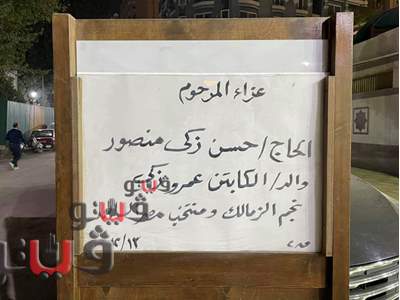 عزاء المرحوم
الحاج / حسن زكى منصور
والد / الكابتن عمرو زكى
نجم الزمالك و منتخب مصر
ڤيتو
ڤيتو
ڤيتو